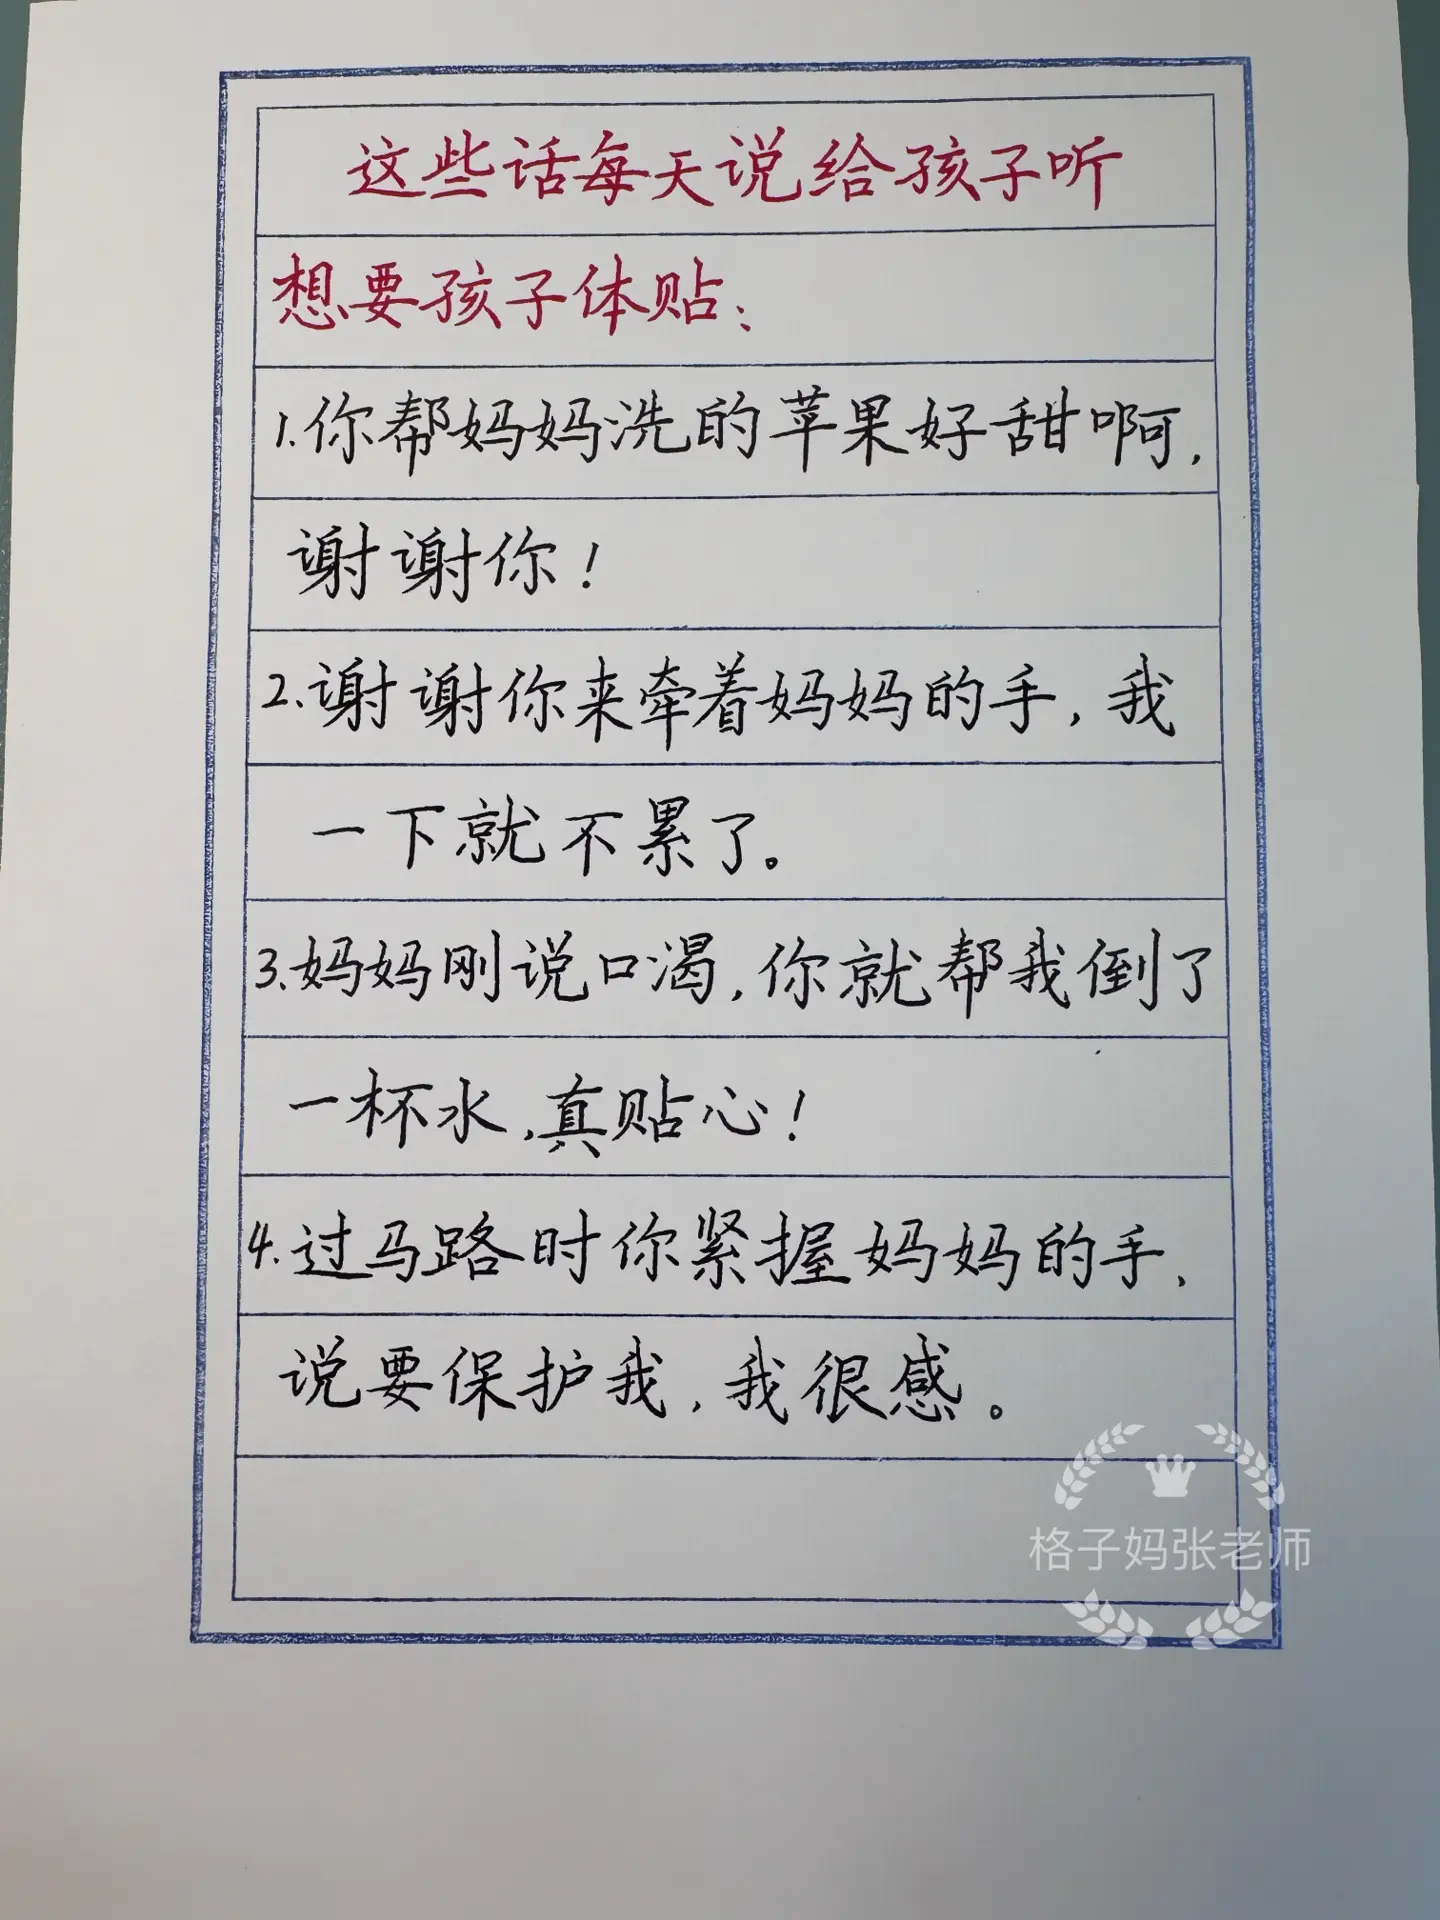 这些话每天说给孩子听
想要孩子体贴：
1.你帮妈妈洗的苹果好甜啊，
谢谢你！
2.谢谢你来牵着妈妈的手，我
一下就不累了。
3.妈妈刚说口渴，你就帮我倒了
一杯水，真贴心！
4.过马路时你紧握妈妈的手，
说要保护我，我很感。
格子妈张老师